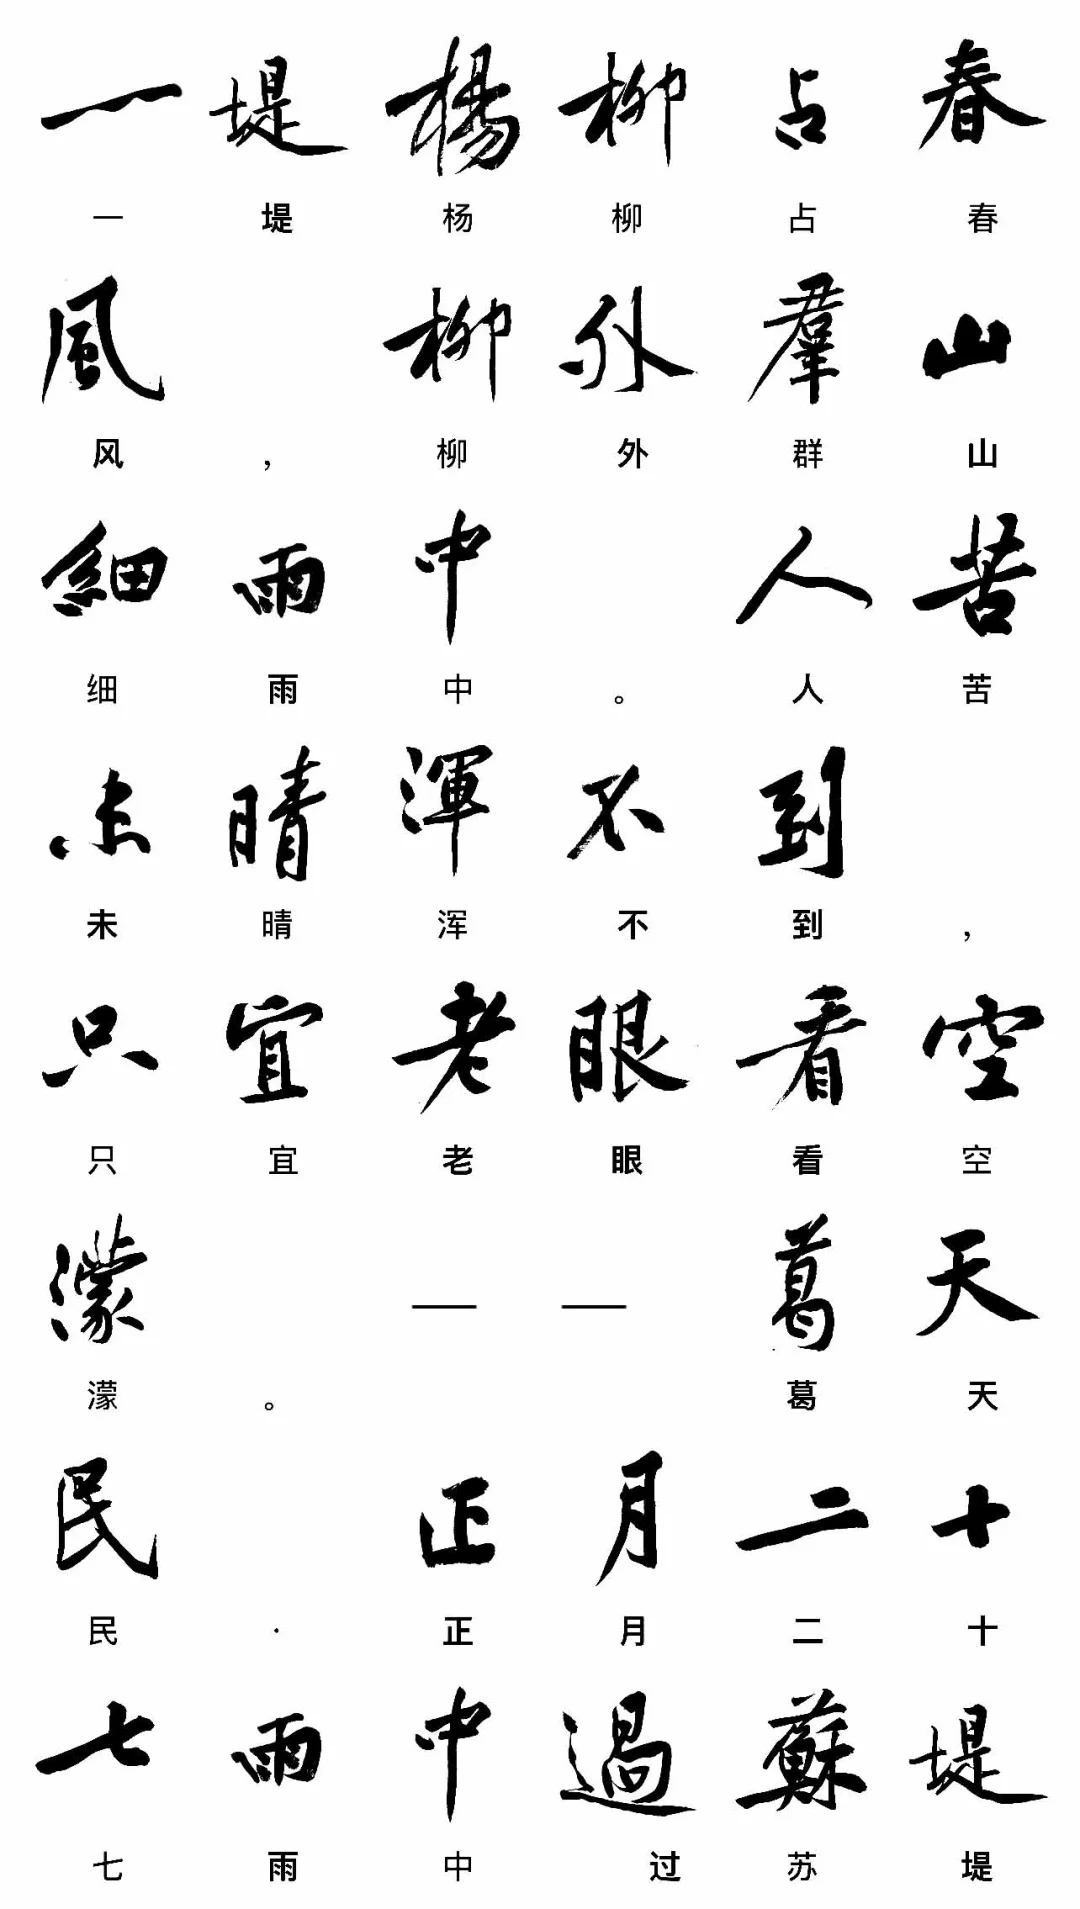 一堤楊柳占春
一堤杨柳占春
風 柳外羣山
风，柳外群山
細雨中 人苦
细雨中。人苦
未晴渾不到
未晴浑不到，
只宜老眼看空
只宜老眼看空
濛 —— 葛天
濛。 葛天
民 正月二十
民·正月二十
七雨中過蘇堤
七雨中过苏堤